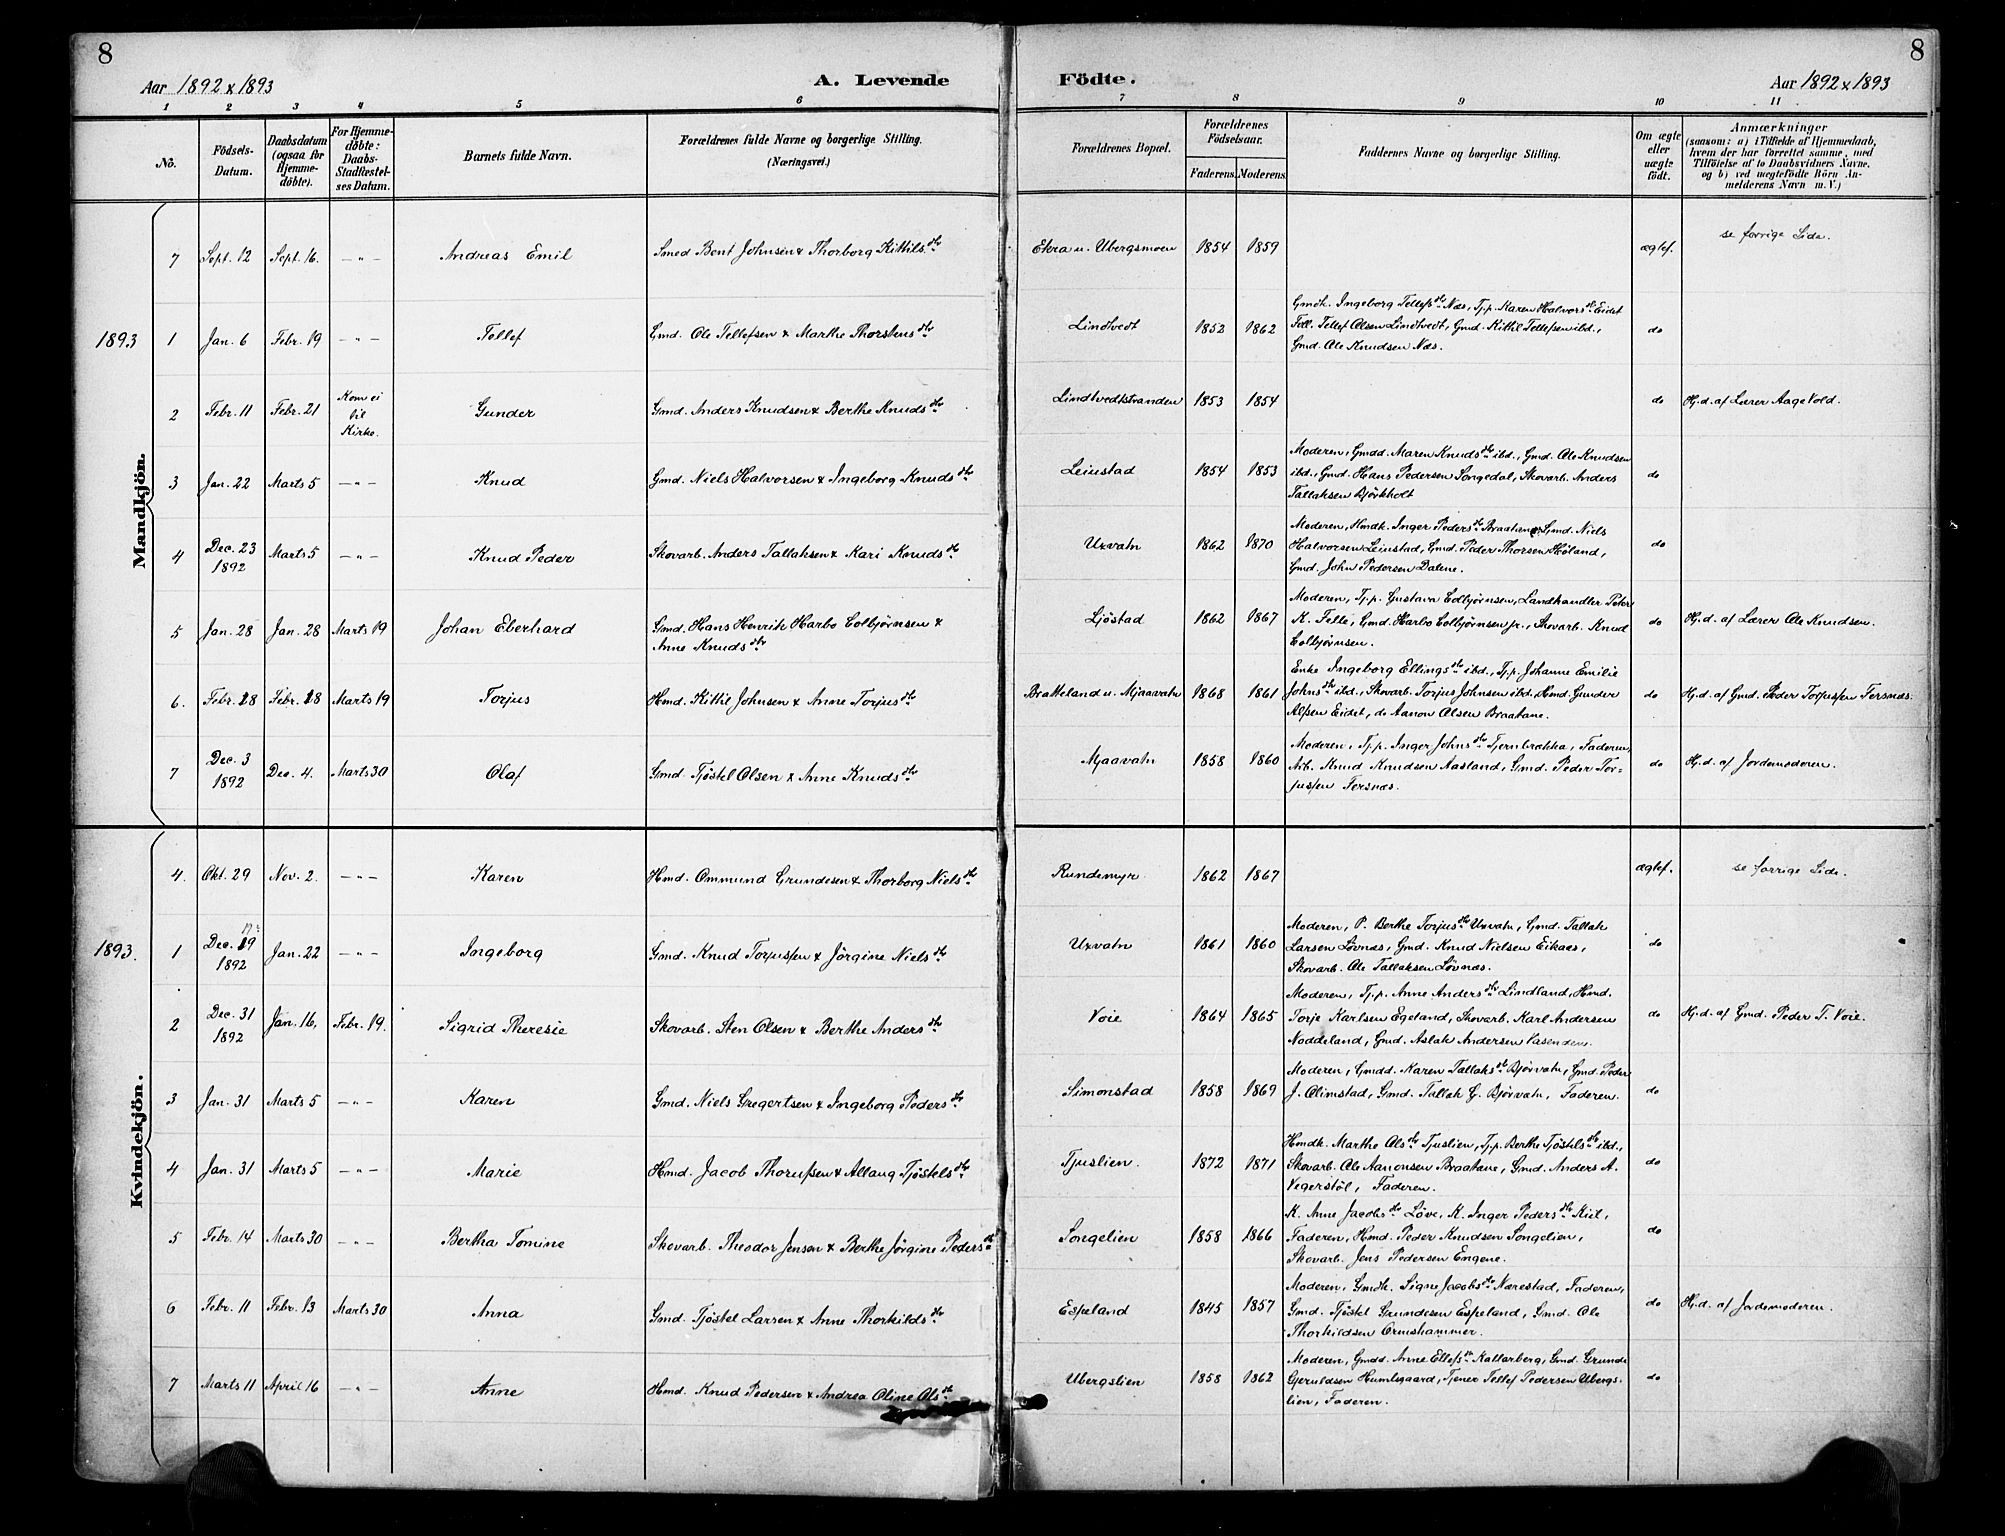 8
Aar 1892 & 1893
A. Levende
Födte.
Aar 1892 & 1893
8
1 2 3 4 5 6 7 8 9 10 11
No.
Födsels-Datum.
Daabsdatum (ogsaa for Hjemme-döbte).
For Hjemme-döbte: Daabs-Stadfæstel-ses Datum.
Barnets fulde Navn.
Forældrenes fulde Navne og borgerlige Stilling. (Næringsvei.)
Forældrenes Bopæl.
Forældrenes Födselsaar.
Faderens. Moderens.
Faddernes Navne og borgerlige Stilling.
Om ægte eller uægte födt.
Anmærkninger (saasom: a) i Tilfælde af Hjemmedaab, hvem der har forrettet samme, med Tilföielse af to Daabsvidners Navne, og b) ved uægtefödte Börn An-melderens Navn m. V.)
Mandkjön.
7 Sept. 12 Sept. 16. -"- Andreas Emil Smed Bent Johnsen & Thorborg Kittilsdtr Ekra u. Ubergsmoen 1854 1859 ægtef. se forrige Side.
1893 1 Jan. 6 Febr. 19 -"- Tellef Gmd. Ole Tellefsen & Marthe Thorstensdtr Lindtvedt 1852 1862
Gmdk. Ingeborg Tellefsdtr Næs, Tjp. Karen Halvorsdtr Eidet
Foll. Tellef Olsen Lindtvedt, Gmd. Kittil Tellefsen ibd.,
Gmd. Ole Knudsen Næs.
do
2 Febr. 11 Febr. 21 Kom ei til Kirke. Gunder Gmd. Anders Knudsen & Berthe Knudsdtr Lindtvedtstranden 1853 1854 do Hj.d. af Lærer Aage Vold.
3 Jan. 22 Marts 5 -"- Knud Gmd. Niels Halvorsen & Ingeborg Knudsdtr Leiustad 1854 1853
Moderen, Gmdd. Maren Knudsdtr ibd., Gmd. Ole Knudsen
ibd., Gmd. Hans Pedersen Songedal, Skovarb. Anders
Tallaksen Bjørkholt
do
4 Dec. 23 1892 Marts 5 -"- Knud Peder Skovarb. Anders Tallaksen & Kari Knudsdtr Uxvatn 1862 1870
Moderen, Hmdk. Inger Pedersdtr Braatane, Gmd. Niels
Halvorsen Leiustad, Gmd. Peder Thorsen Høland,
Gmd. John Pedersen Dalene.
do
5 Jan. 28 Jan. 28 Marts 19 Johan Eberhard Gmd. Hans Henrik Harbo Colbjørnsen & Anne Knudsdtr Ljöstad 1862 1867
Moderen, Tjp. Gustava Colbjørnsen, Landhandler Peter
K. Felle, Gmd. Harbo Colbjørnsen jr., Skovarb. Knud
Colbjørnsen.
do Hj.d. af Lærer Ole Knudsen.
6. Febr. 18 Febr. 18 Marts 19 Torjus Hmd. Kittil Johnsen & Anne Torjusdtr Bratteland u. Mjaavatn 1868 1861
Enke Ingeborg Ellingsdtr ibd., Tjp. Johanne Emilie
Johnsdtr ibd., Skovarb. Torjus Johnsen ibd., Hmd. Gunder
Alfsen Eidet, do Aanon Olsen Braatane.
do Hj.d. af Gmd. Peder Torjussen Fersnæs.
7 Dec. 3 1892 Dec. 4. Marts 30 Olaf Gmd. Tjöstel Olsen & Anne Knudsdtr Mjaavatn 1858 1860
Moderen, Tjp. Inger Johnsdtr Tjernbrækka, Faderen,
Arb. Knud Knudsen Aasland, Gmd. Peder Tor-
jussen Fersnæs.
do Hj.d. af Jordemoderen.
Kvindekjön.
4. Okt. 29 Nov. 2. -"- Karen Hmd. Ommund Grundesen & Thorborg Nielsdtr Rundemyr 1862 1867 ægtef. se forrige Side.
1893. 1 Dec. 19 1892 Jan. 22 -"- Ingeborg Gmd. Knud Torjussen & Jörgine Nielsdtr Uxvatn 1861 1860
Moderen, P. Berthe Torjusdtr Uxvatn, Gmd. Tallak
Larsen Løvnæs, Gmd. Knud Nielsen Eikaas,
Skovarb. Ole Tallaksen Løvnæs.
do
2 Dec. 31 1892 Jan. 16. Febr. 19. Sigrid Theresie Skovarb. Sten Olsen & Berthe Andersdtr Voie 1864 1865
Moderen, Tjp. Anne Andersdtr Lindland, Hmd.
Torje Karlsen Egeland, Skovarb. Karl Andersen
Noddeland, Gmd. Aslak Andersen Vasenden.
do Hj.d. af Gmd. Peder T. Voie.
3 Jan. 31 Marts 5 -"- Karen Gmd. Niels Gregertsen & Ingeborg Pedersdtr Simonstad 1858 1869
Moderen, Gmdd. Karen Tallaksdtr Bjørvatn, Gmd. Peder
J. Olimstad, Gmd. Tallak G. Bjørvatn, Faderen.
do
4 Jan. 31 Marts 5 -"- Marie Hmd. Jacob Thorufsen & Allaug Tjöstelsdtr Tjuslien. 1872 1871
Hmdk. Marthe Olsdtr Tjuslien, Tjp. Berthe Tjöstelsdtr ibd.,
Skovarb. Ole Aanonsen Braatane, Gmd. Anders A.
Vegerstöl, Faderen.
do
5 Febr. 14 Marts 30 -"- Bertha Tomine Skovarb. Theodor Jensen & Berthe Jörgine Pedersdtr Songelien 1858 1866
K. Anne Jacobsdtr Løve, K. Inger Pedersdtr Kiil,
Faderen, Hmd. Peder Knudsen Songelien,
Skovarb. Jens Pedersen Engene.
do
6 Febr. 11 Febr. 13 Marts 30 Anna Gmd. Tjöstel Larsen & Anne Thorkildsdtr Espeland 1845 1857
Moderen, Gmdk. Signe Jacobsdtr Nærestad, Faderen,
Gmd. Tjöstel Grundesen Espeland, Gmd. Ole
Thorkildsen Ormshammer.
do Hj.d. af Jordemoderen.
7 Marts 11 April 16 -"- Anne Hmd. Knud Pedersen & Andrea Oline Olsdtr Ubergslien 1858 1862
Moderen, Gmdd. Anne Ellefsdtr Kallarberg, Gmd. Grunde
Gjeruldsen Humlegaard, Tjener Tellef Pedersen Ubergs-
lien, Faderen.
do